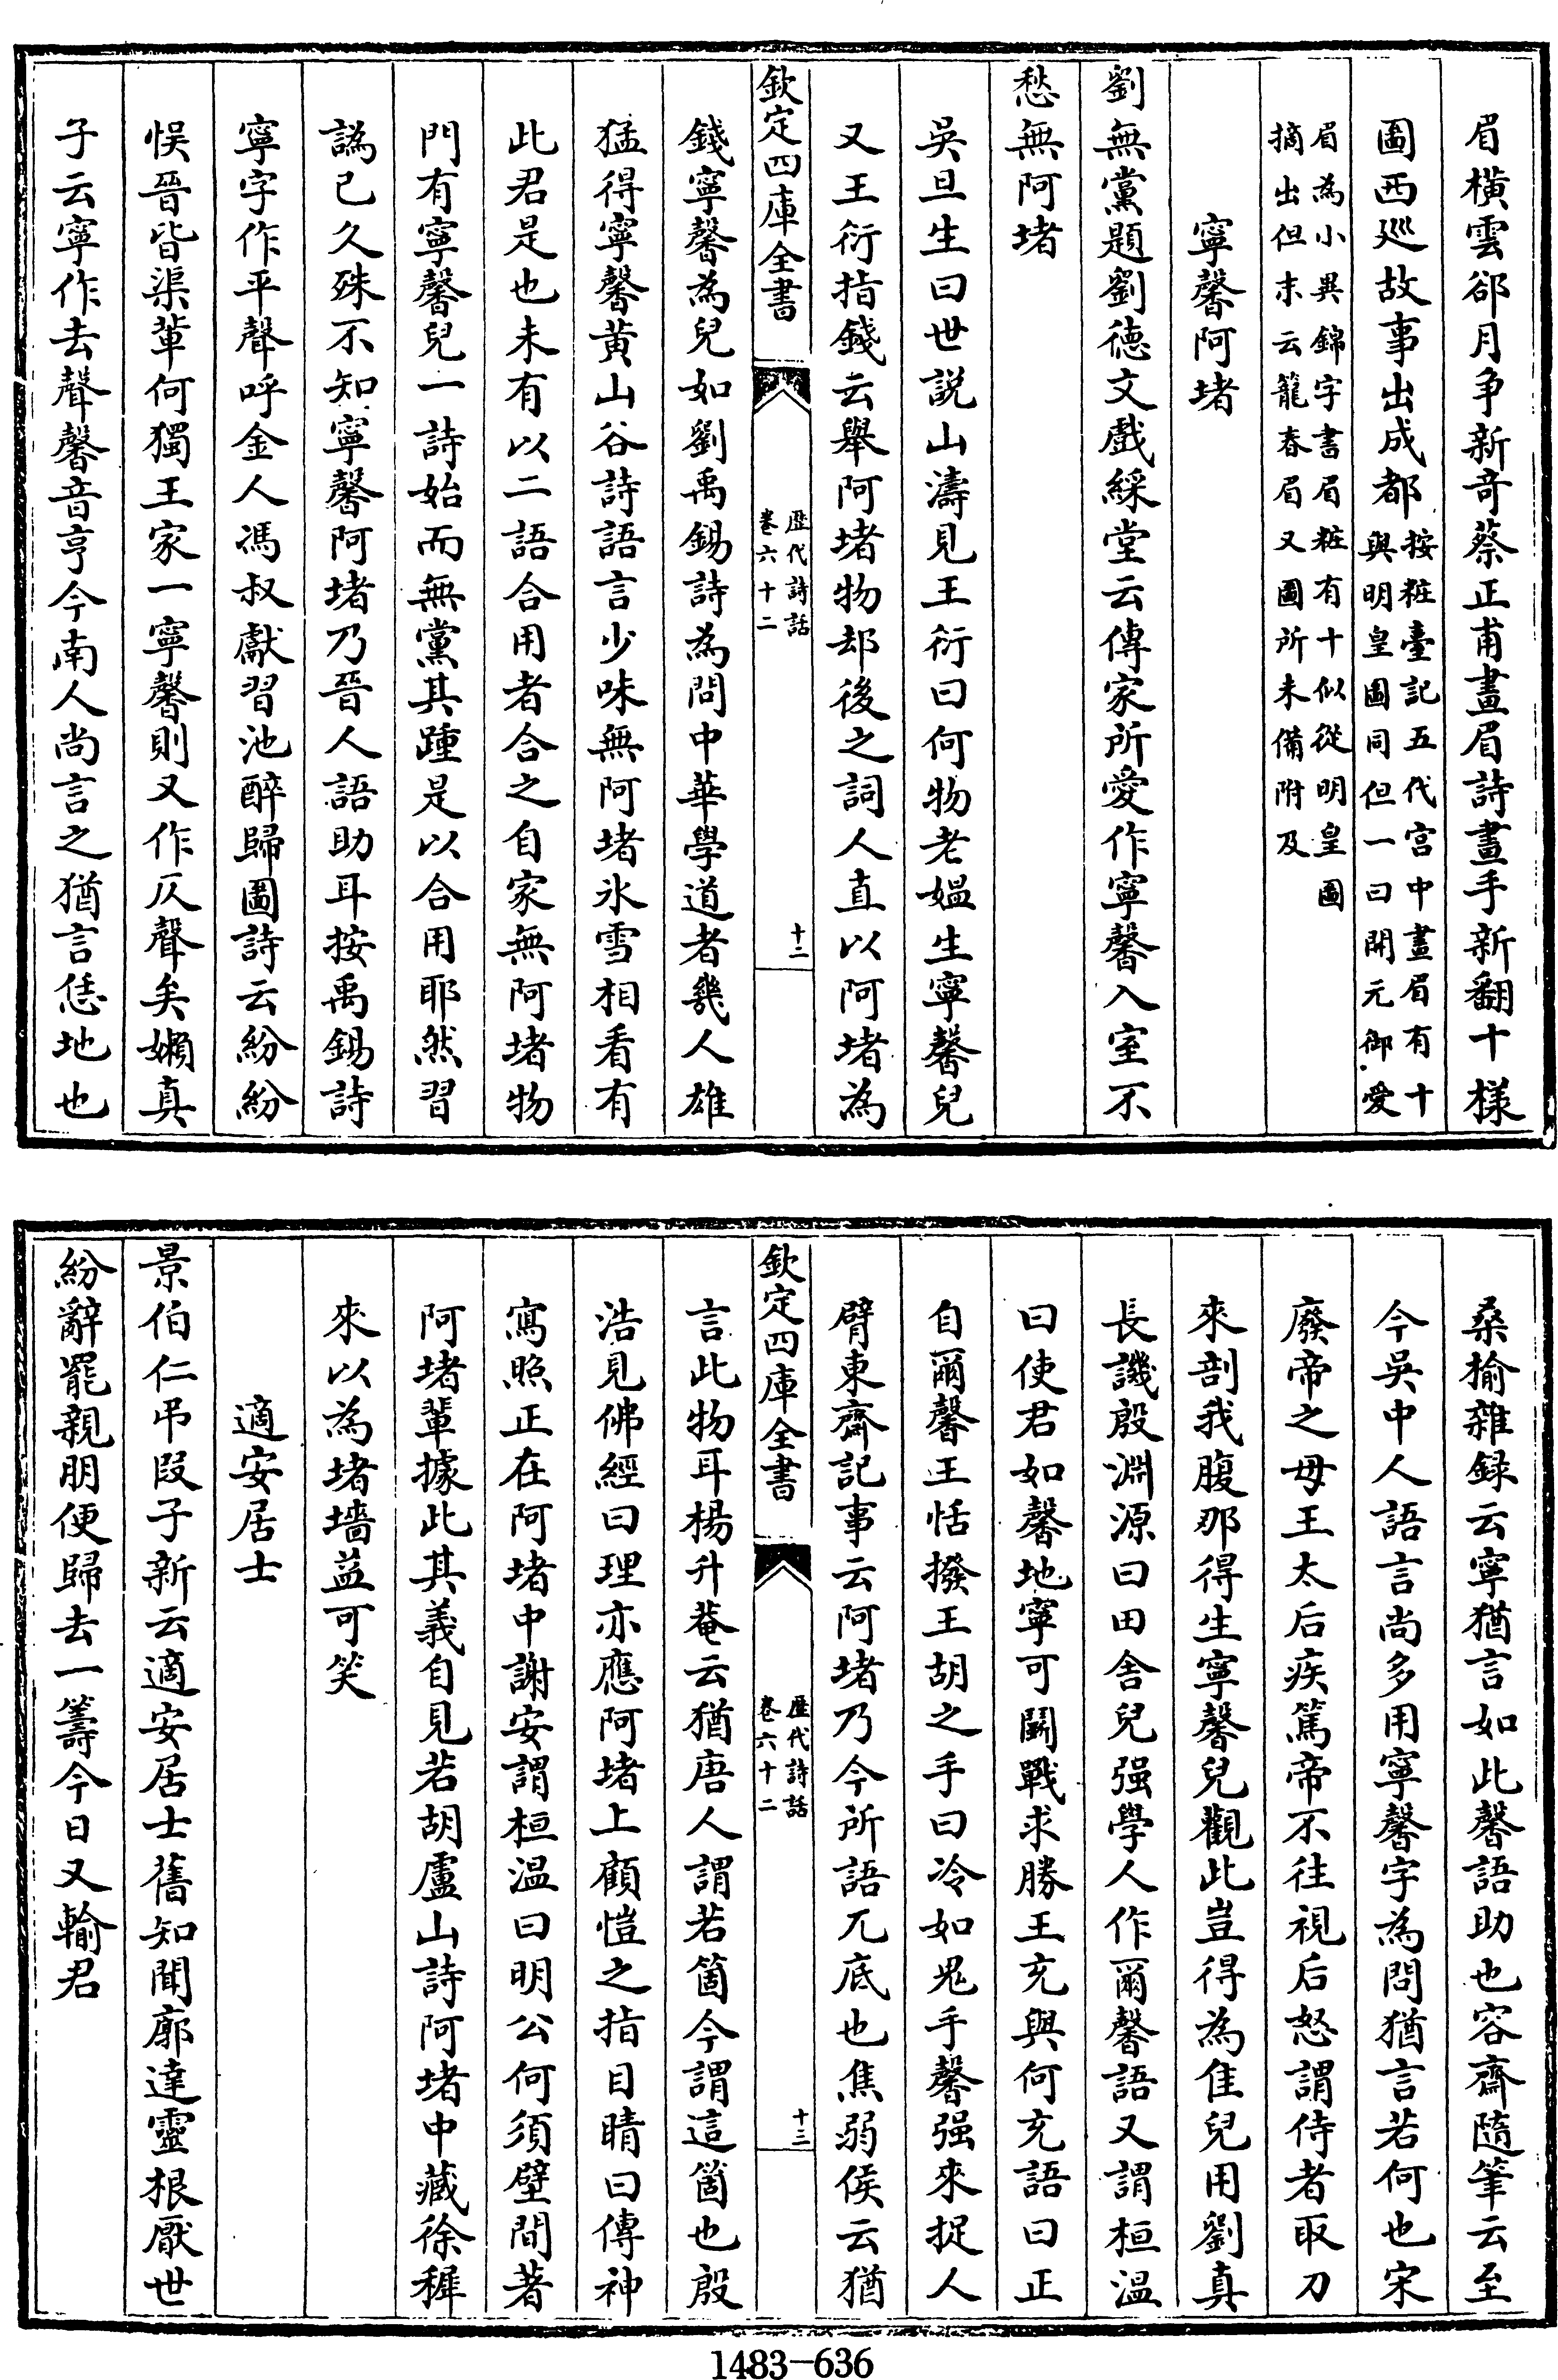 眉橫雲郤月争新竒蔡正甫畫眉詩畫手新翻十様
圖西廵故事出成都按粧臺記五代宫中畫眉有十
與明皇圖同但一曰開元御愛
眉為小異錦字書眉粧有十似從明皇圖
摘出但末云籠春眉又圖所未備附及
寧馨阿堵
劉無黨題劉德文戲綵堂云傳家所愛作寧馨入室不
愁無阿堵
吳旦生曰世説山濤見王衍曰何物老媪生寧馨兒
又王衍指錢云舉阿堵物却後之詞人直以阿堵為
欽定四庫全書
歴代詩話
卷六十二
十二
錢寧馨為兒如劉禹錫詩為問中華學道者㡬人雄
猛得寧馨黄山谷詩語言少味無阿堵氷雪相看有
此君是也未有以二語合用者合之自家無阿堵物
門有寧馨兒一詩始而無黨其踵是以合用耶然習
譌已久殊不知寧馨阿堵乃晉人語助耳按禹錫詩
寧字作平聲呼金人馮叔獻習池醉歸圖詩云紛紛
悞晉皆渠軰何獨王家一寧馨則又作仄聲矣嬾真
子云寧作去聲馨音亨今南人尚言之猶言恁地也
桑榆雜録云寧猶言如此馨語助也容齋隨筆云至
今吳中人語言尚多用寧馨字為問猶言若何也宋
廢帝之母王太后疾篤帝不往視后怒謂侍者取刀
來剖我腹那得生寧馨兒觀此豈得為佳兒用劉真
長譏殷淵源曰田舍兒强學人作爾馨語又謂桓温
曰使君如馨地寧可鬭戰求勝王充與何充語曰正
自爾馨王恬撥王胡之手曰冷如鬼手馨强來捉人
臂東齋記事云阿堵乃今所語兀底也焦弱侯云猶
欽定四庫全書
歴代詩話
卷六十二
十三
言此物耳楊升菴云猶唐人謂若箇今謂這箇也殷
浩見佛經曰理亦應阿堵上顧愷之指目睛曰傳神
寫照正在阿堵中謝安謂桓温曰明公何須壁間著
阿堵輩據此其義自見若胡盧山詩阿堵中藏徐穉
來以為堵墻益可笑
適安居士
景伯仁弔段子新云適安居士舊知聞廓達靈根厭世
紛辭罷親朋便歸去一籌今日又輸君
1483-636